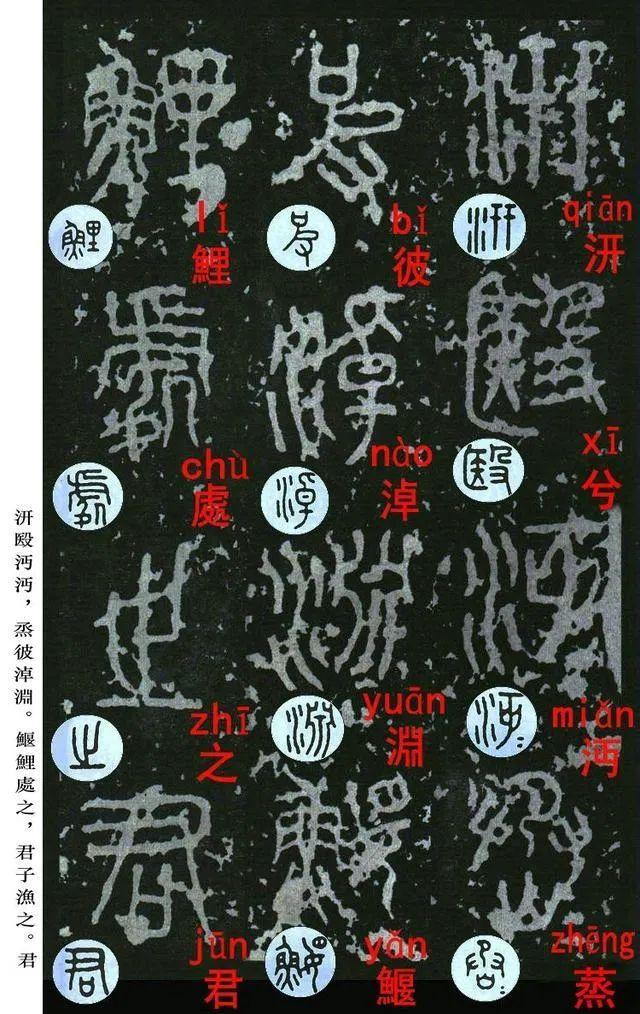 qiān
汧
xī
兮
miǎn
沔
zhēng
蒸
bǐ
彼
nào
淖
yuān
淵
yǎn
鰋
lǐ
鯉
chù
處
zhī
之
jūn
君
汧殹沔沔，烝彼淖淵。鰋鯉處之，君子漁之。君